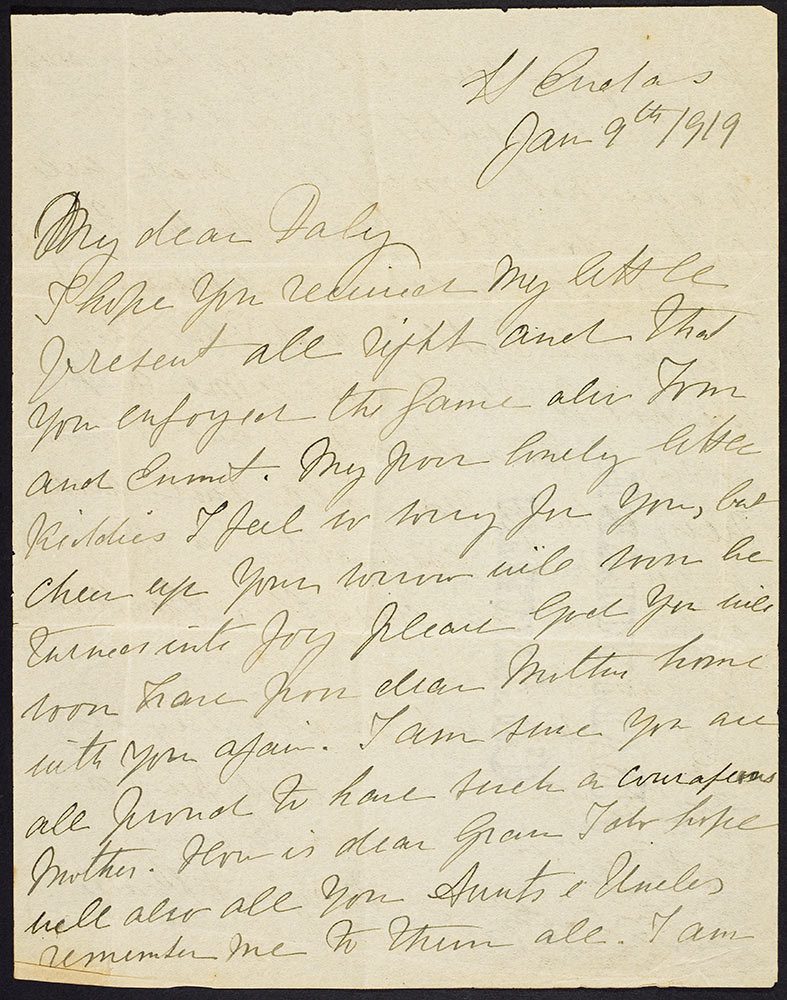 St Endas
Jan 9th 1919
My dear Daly
I hope you received my little
present all right and that
you enjoyed the game also Tom
and Emmet. My poor lonely little
Kiddies I feel so sorry for you, but
cheer up your sorrow will soon be
turned into joy please God you will
soon have poor dear Mother home
with you again. I am sure you are
all proud to have such a courageous
Mother. How is dear Gran I do hope
well also all you Aunts & Uncles
remember me to them all. I am